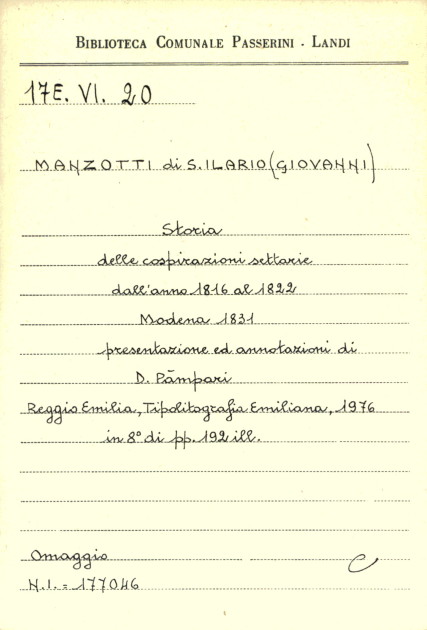 BIBLIOTECA COMUNALE PASSERINI - LANDI
17E. VI. 20
MANZOTTI di S. ILARIO (GIOVANNI)
Storia
delle cospirazioni settarie
dall'anno 1816 al 1822
Modena 1831
presentazione ed annotazioni di
D. Pămpari
Reggio Emilia, Tipolitografia Emiliana, 1976
in 8° di pp. 192 ill.
Omaggio
N.I. = 177046